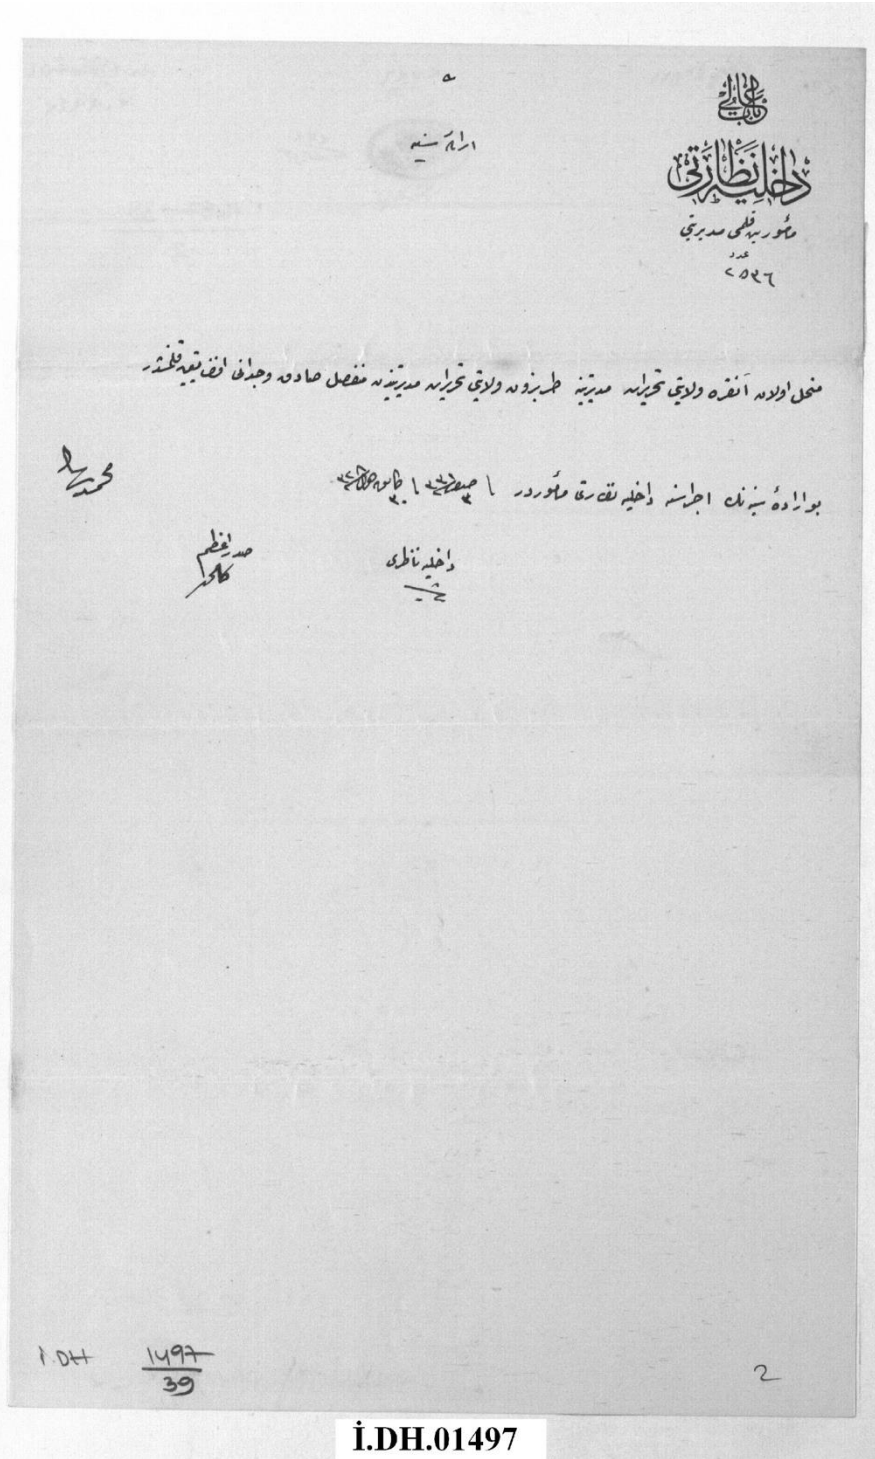 ه
باب عالی
داخلیه نظارتی
مأمورین قلمی مدیریتی
عدد
٢٥٣٦
ارادۀ سنیه
منحل اولان آنقره ولایتی تحریرات مدیریتنه طربزون ولایتی تحریرات مدیریتندن منفصل صادق وجدانی افندی تعیین قلنمشدر
بو ارادۀ سنیه نك اجراسنه داخلیه نظارتی مأموردر
محمد رشاد
صدر اعظم
كامل
داخلیه ناظری
İ.DH
1497
39
2
İ.DH.01497